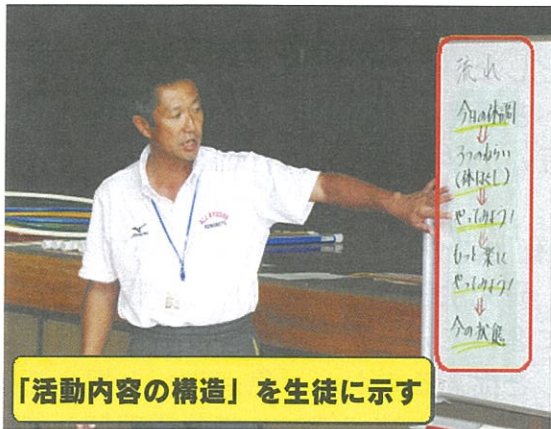 流れ
今日の体調
⇓
3つのねらい
(体ほぐし)
⇓
やってみよう!
⇓
もっと楽に
やってみよう!
⇓
今の状態
「活動内容の構造」を生徒に示す